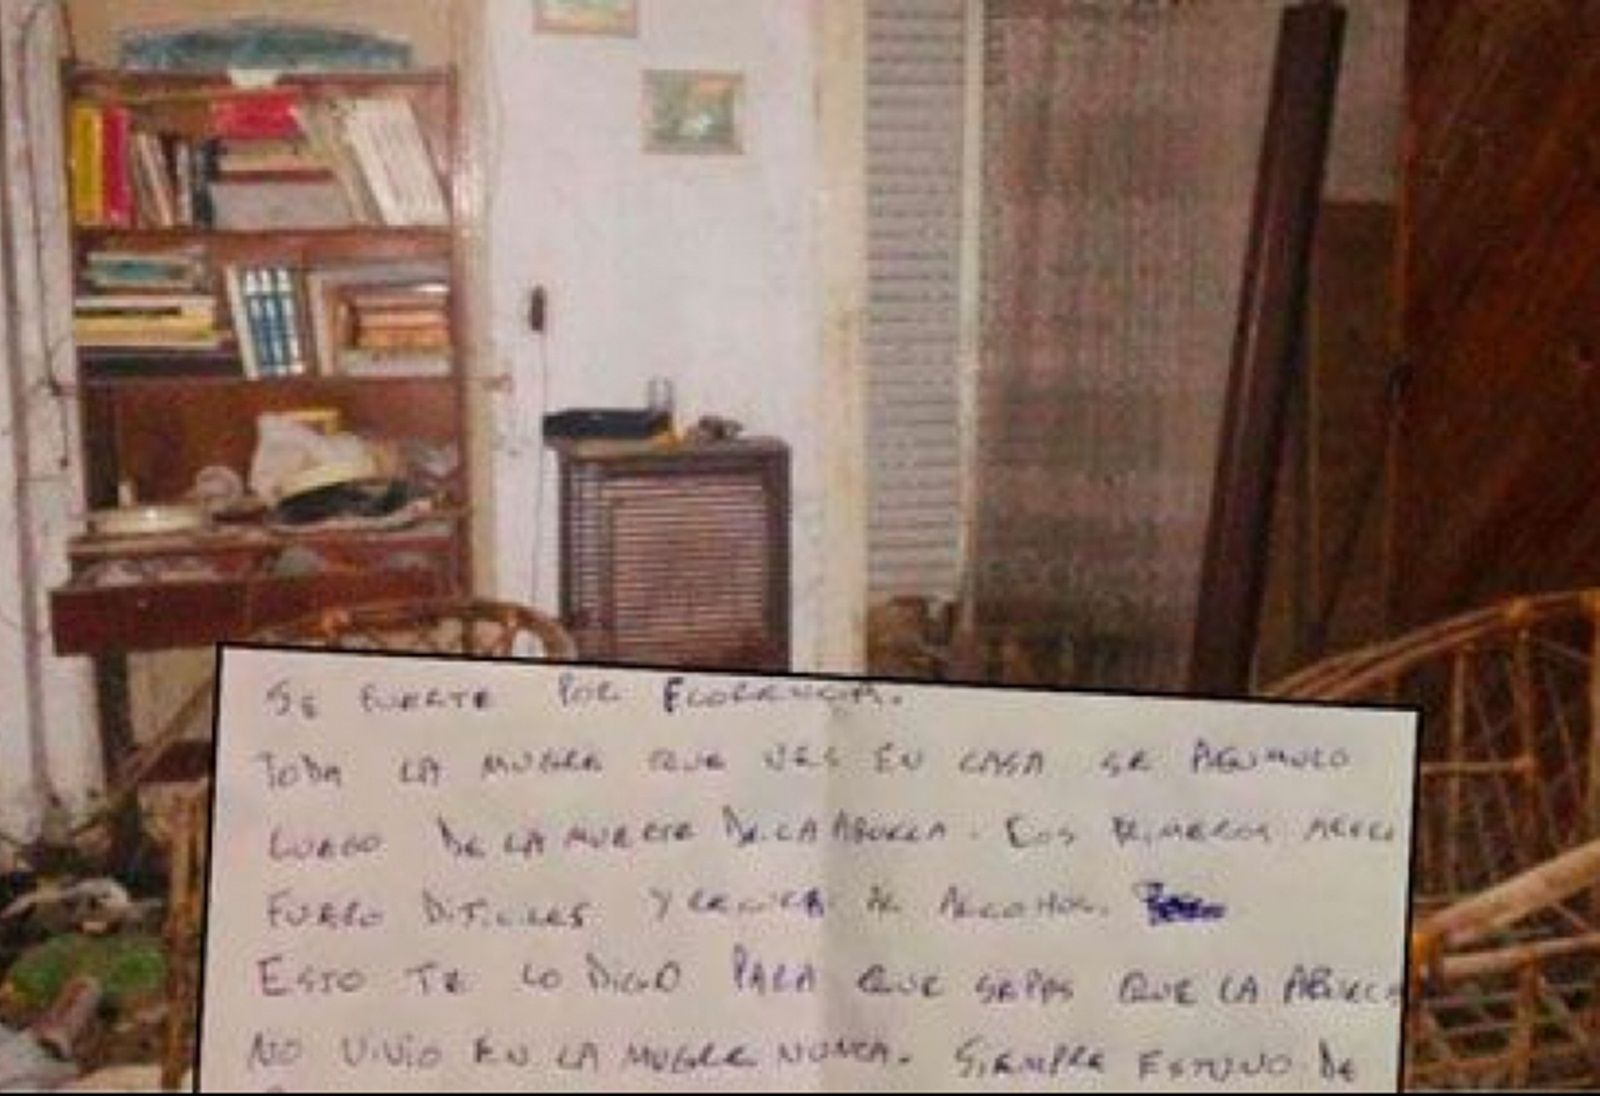 SE FUERTE POR FLORENCIA.
TODA LA MUGRE QUE VES EN CASA SE ACUMULO
LUEGO DE LA MUERTE DE LA ABUELA. LOS PRIMEROS MESES
FUERO DIFICILES Y AL ALCOHOL.
ESTO TE LO DIGO PARA QUE SEPAS QUE LA ABUELA
NO VIVIO EN LA MUGRE NUNCA. SIEMPRE ESTUVO DE